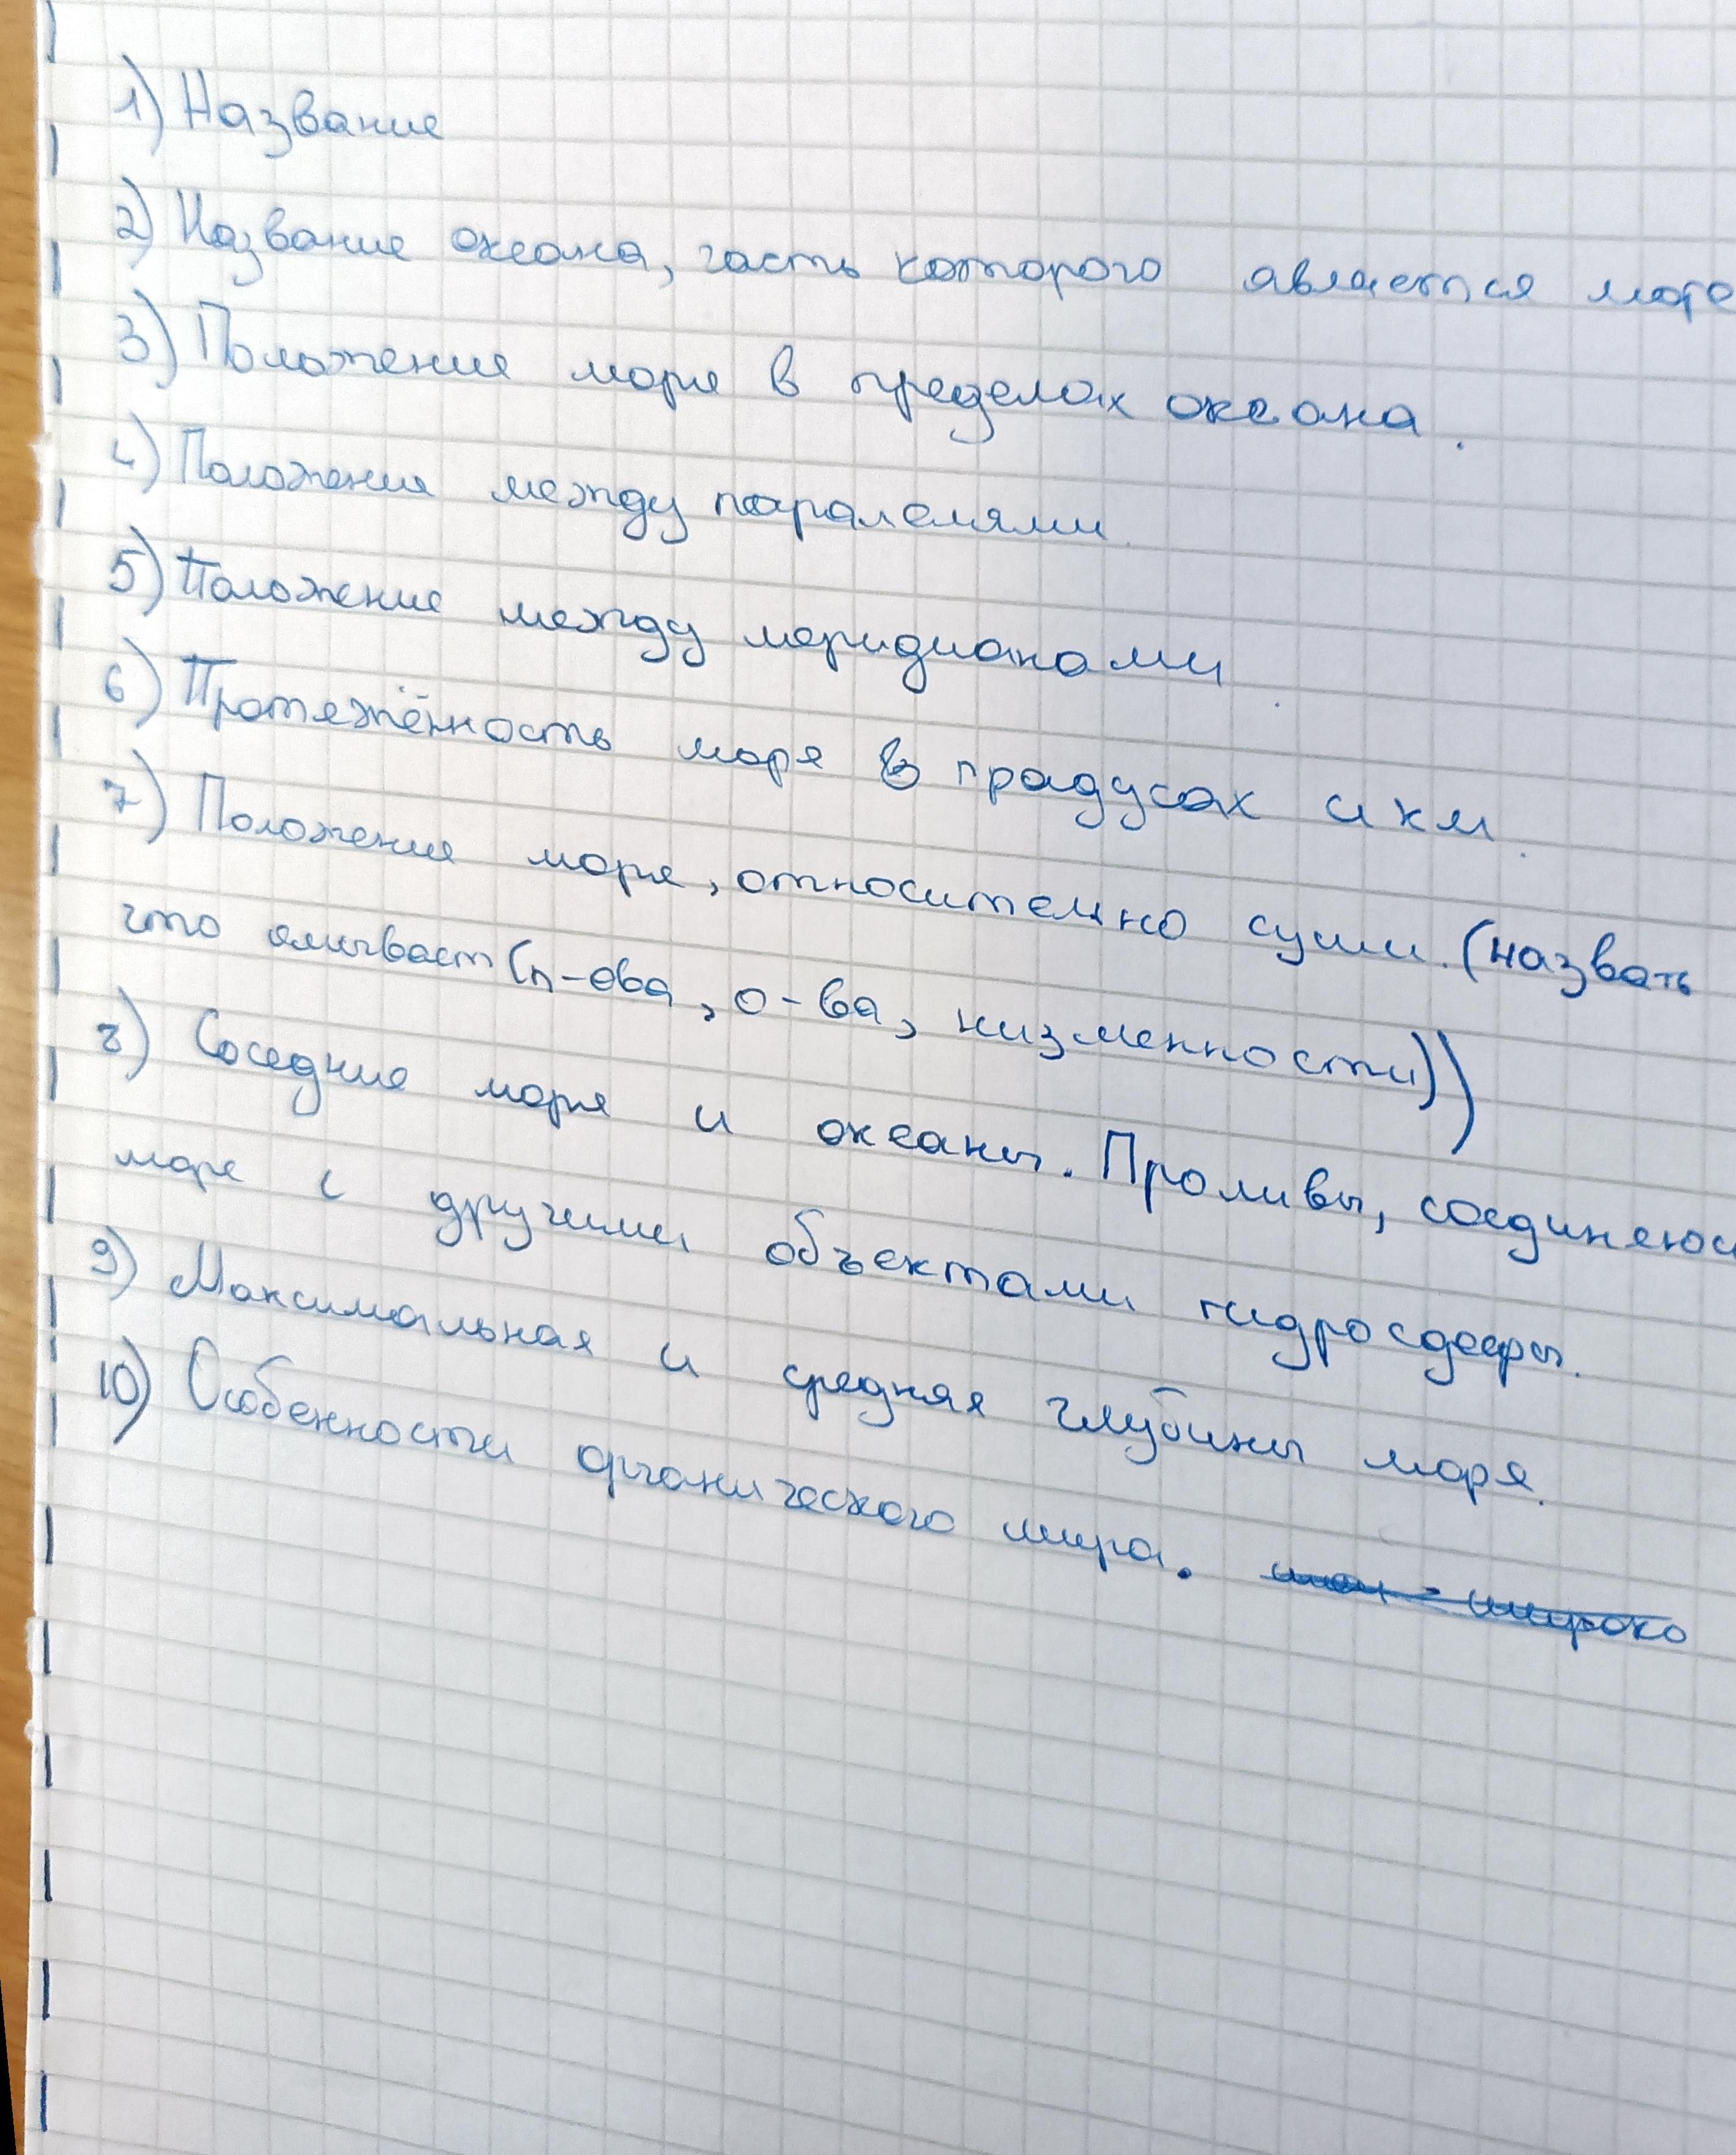 1) Название
2) Название океана, часть которого является море
3) Положение моря в пределах океана.
4) Положения между паралелями.
5) Положение между меридианами.
6) Протяжённость моря в градусах и км.
7) Положения моря, относительно суши. (назвать
что омывает (п-ова, о-ва, низменности))
8) Соседние моря и океаны. Проливы, соединяющ
моря с другими объектами гидросферы.
9) Максимальная и средняя глубины моря.
10) Особенности органического мира.